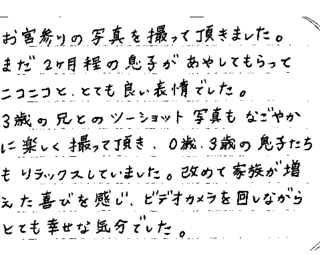 お宮参りの写真を撮って頂きました。
まだ2ヶ月程の息子があやしてもらって
ニコニコと、とても良い表情でした。
3歳の兄とのツーショット写真もなごやか
に楽しく撮って頂き、0歳、3歳の息子たち
もリラックスしていました。改めて家族が増
えた喜びを感じ、ビデオカメラを回しながら
とても幸せな気分でした。